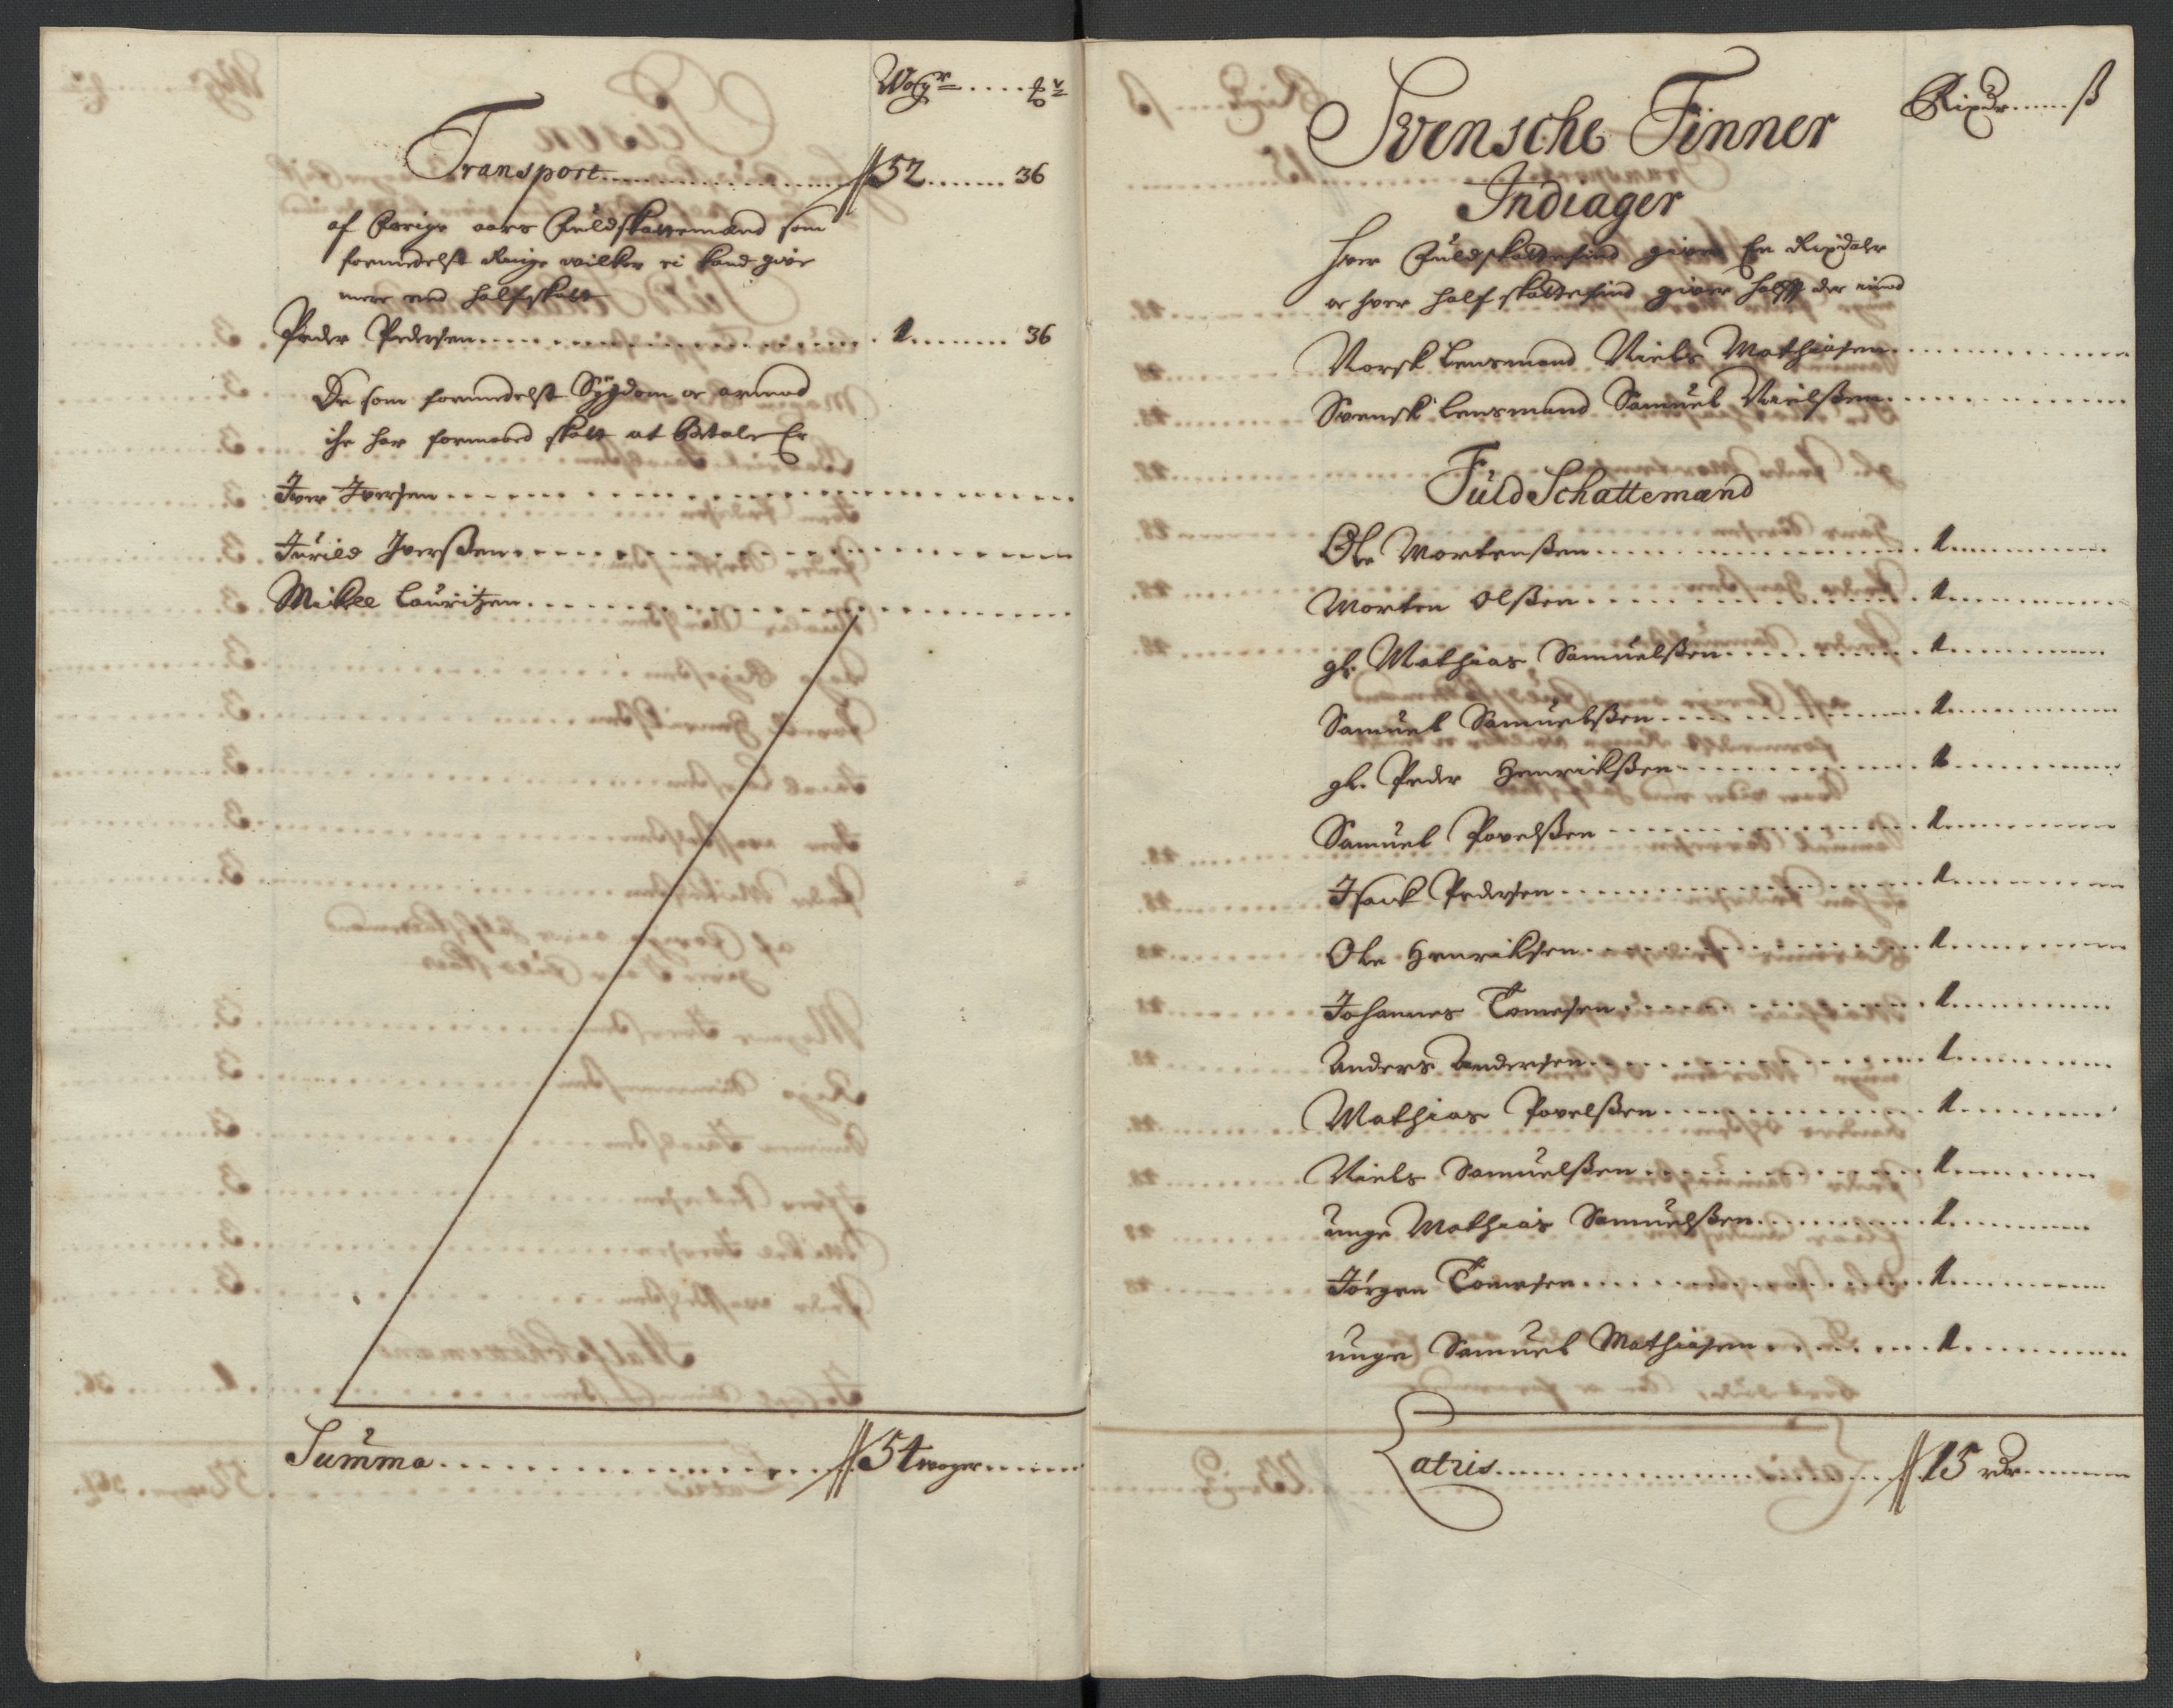 Wogr .... 
Transport ........ 52 ...... 36
af Forige aars Fuldskattemænd som
formedelst Ringe wilkor ei kand give
mere end halfskatt
Peder Pedersen ........ 1 ........ 36
De som formedelst Sygdom oc armod
iche har formaaed skatt at betale Er
Iver Iversen ........
Iurild Iverßen ........
Mikkel Lauritzen ........
Summa ........ 54 woger ......
Rixdr ...... ß
Svensche Finner
Indiager
Hver Fuldskattefind giver En Rixdaler
oc hver half skattefind giver halff der imod
Norsk Lensmand Niels Mathiasen ........
Svensk Lensmand Samuel Nielßen ........
Fuld Schattemænd
Ole Mortenßen ........ 1 ........
Morten Olßen ........ 1 ........
gl. Mathias Samuelßen ........ 1 ........
Samuel Samuelßen ........ 1 ........
gl. Peder Henrickßen ........ 1 ........
Samuel Povelßen ........ 1 ........
Isack Pedersen ........ 1 ........
Ole Henriksen ........ 1 ........
Johannes Tomesen ........ 1 ........
Anders Andersen ........ 1 ........
Mathias Povelßen ........ 1 ........
Niels Samuelßen ........ 1 ........
unge Mathias Samuelßen ........ 1 ........
Jørgen Tomesen ........ 1 ........
unge Samuel Mathiasen ........ 1 ........
Latris ........ 15 rdr ......